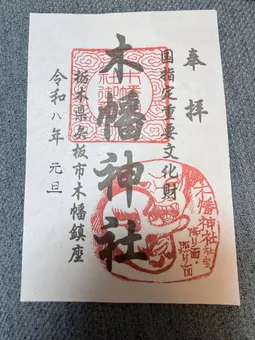 奉拝
国指定重要文化財
木幡神社
栃木県矢板市木幡鎮座
令和八年 元旦
木幡神社
社宝